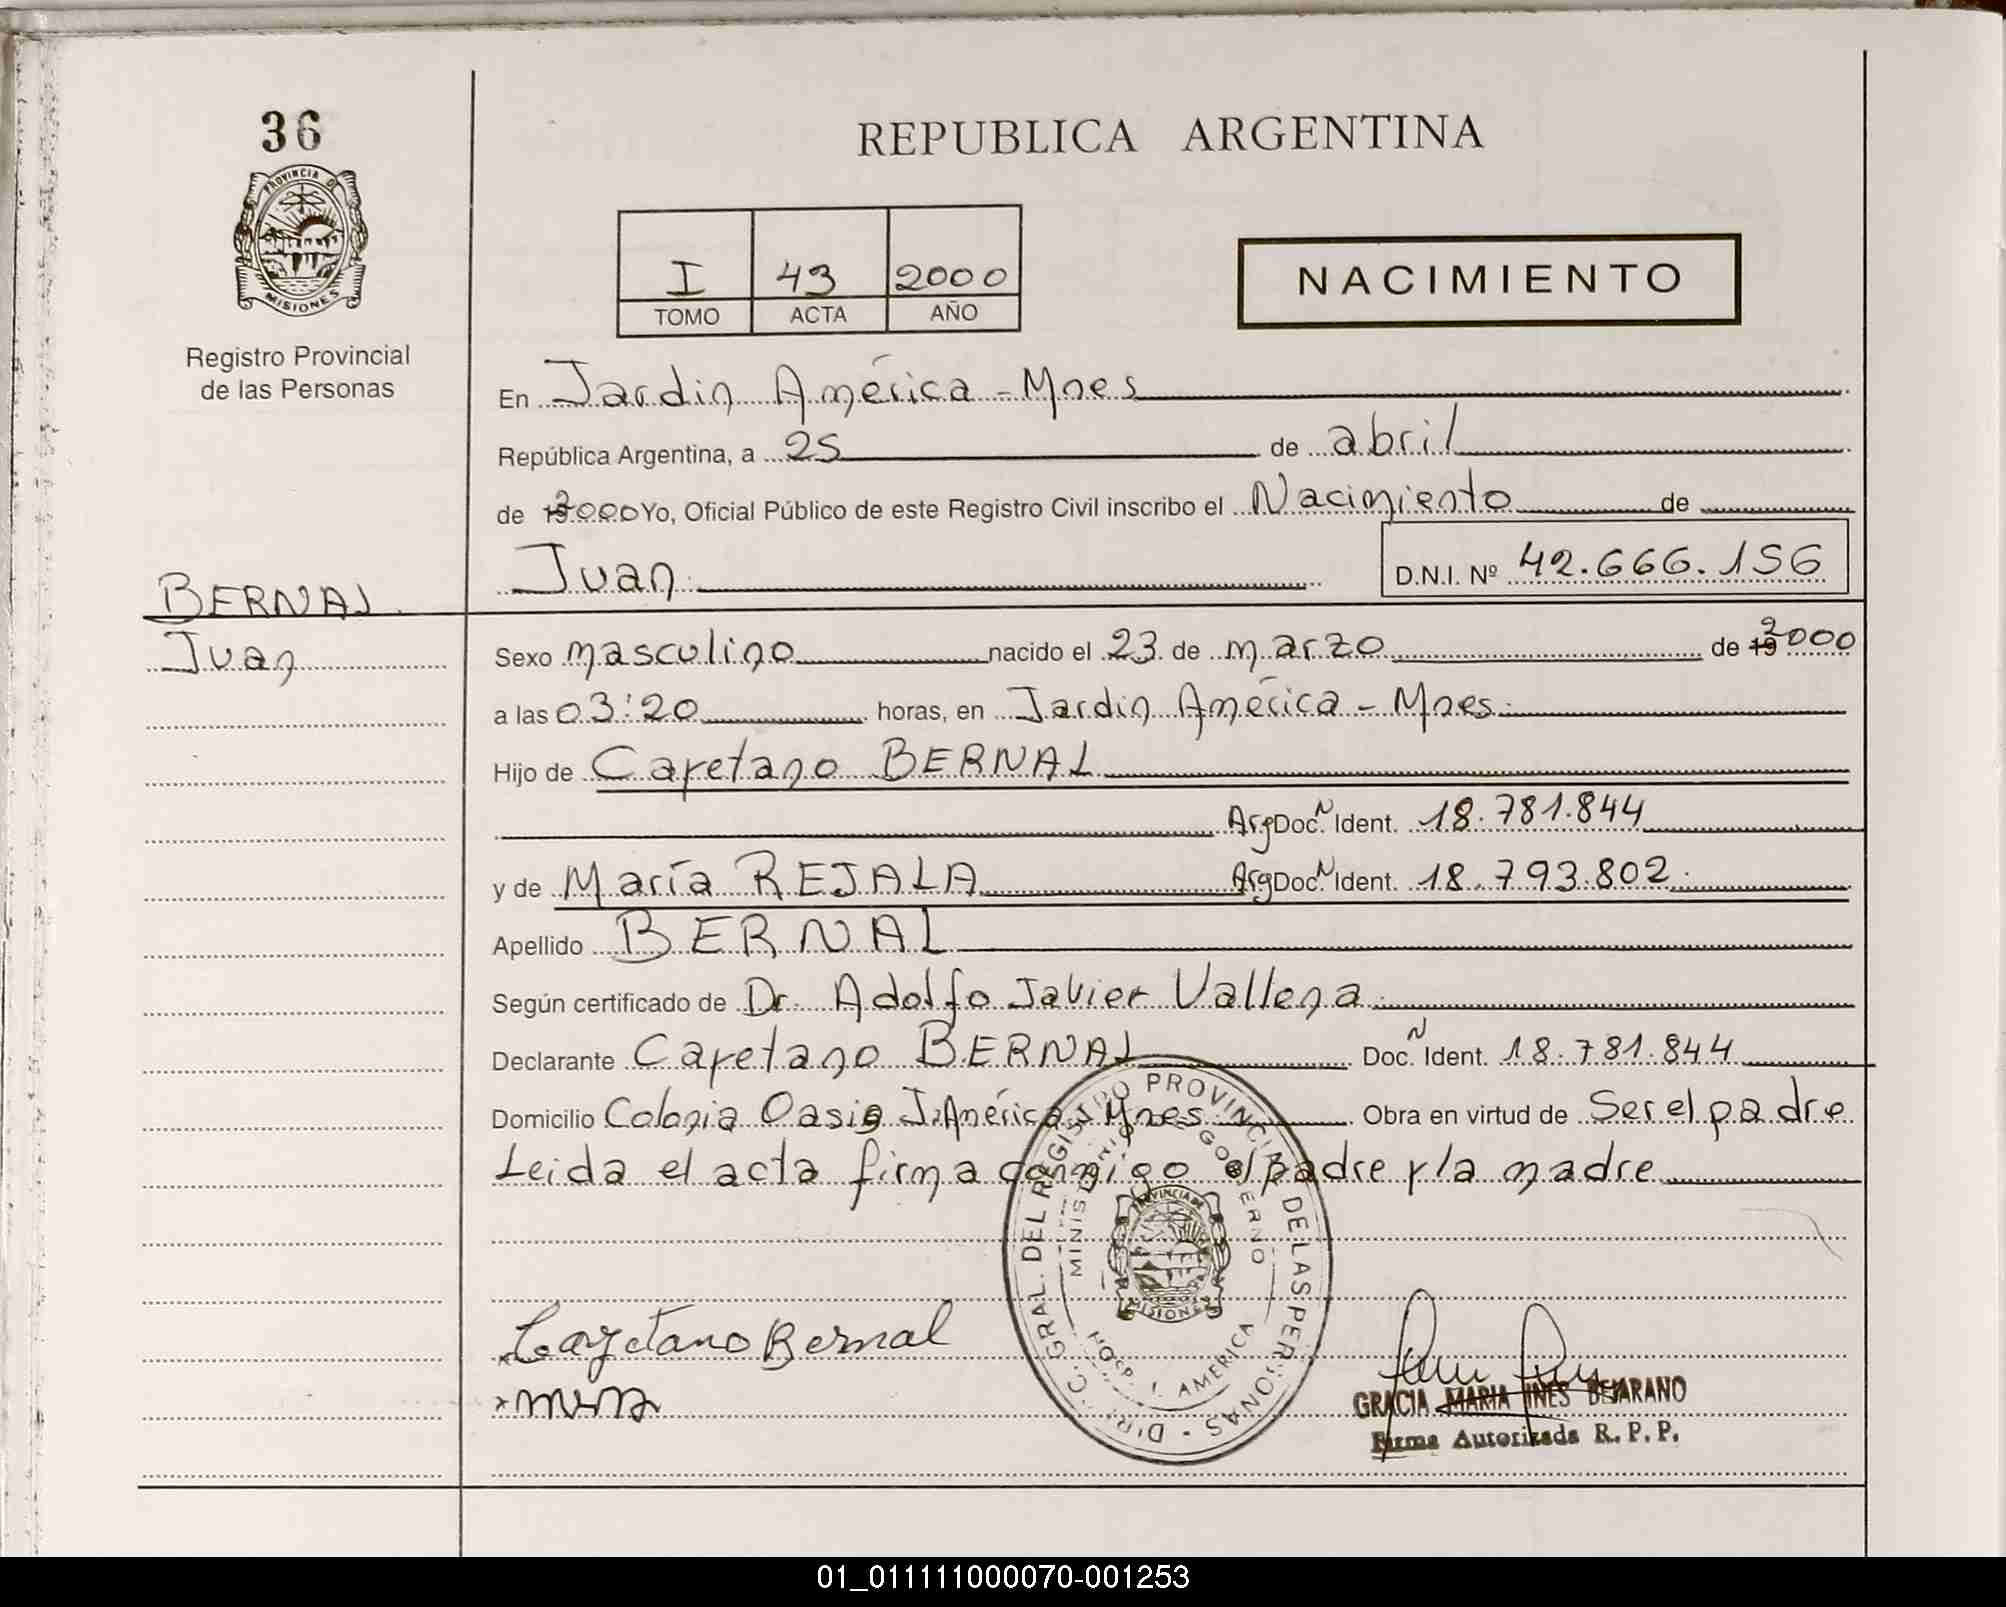 36
REPUBLICA ARGENTINA
PROVINCIA DE
MISIONES
I 43 2000
TOMO ACTA AÑO
NACIMIENTO
Registro Provincial
de las Personas
En Jardin América - Mnes
República Argentina, a 25 de abril
de 2000 Yo, Oficial Público de este Registro Civil inscribo el Nacimiento de
Juan D.N.I. Nº 42.666.156
BERNAL
Juan
Sexo masculino nacido el 23 de marzo de 2000
a las 03:20 horas, en Jardin América - Mnes.
Hijo de Cayetano BERNAL
Arg Doc. N Ident. 18.781.844
y de María REJALA Arg Doc. N Ident. 18.793.802
Apellido BERNAL
Según certificado de Dr. Adolfo Javier Vallena
Declarante Cayetano BERNAL Doc. N Ident. 18.781.844
Domicilio Colonia Oasis J. América Mnes Obra en virtud de Ser el padre
Leida el acta firma conmigo el padre y la madre
DIREC. GRAL. DEL REGISTRO PROVINCIAL DE LAS PERSONAS
MINISTERIO DE GOBIERNO
PROVINCIA DE
MISIONES
HOSP. J. AMERICA
Cayetano Bernal
GRACIA MARIA INES BEJARANO
Firma Autorizada R. P. P.
01_011111000070-001253